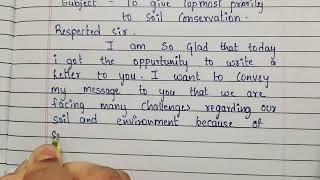 Subject - To give topmost priority
to Soil Conservation.
Respected sir.
I am So Glad that today
i got the oppurtunity to write a
letter to you. I want to convey
my message to you that we are
facing many challenges regarding our
soil and environment because of